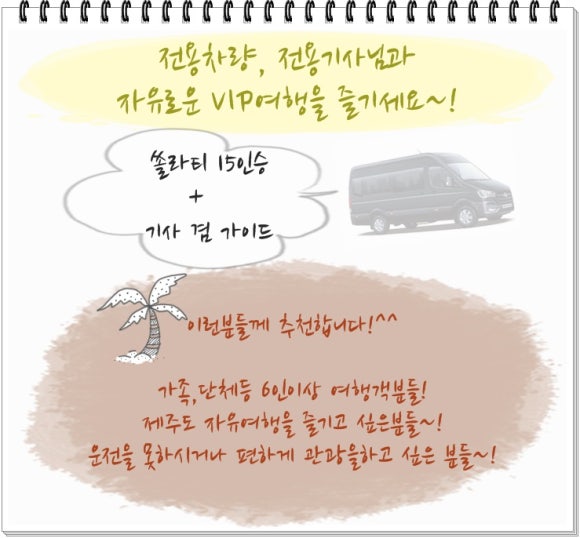 전용차량, 전용기사님과
자유로운 VIP여행을 즐기세요~!
쏠라티 15인승
+
기사 겸 가이드
이런분들께 추천합니다!^^
가족,단체등 6인이상 여행객분들!
제주도 자유여행을 즐기고 싶은분들~!
운전을 못하시거나 편하게 관광을하고 싶은 분들~!